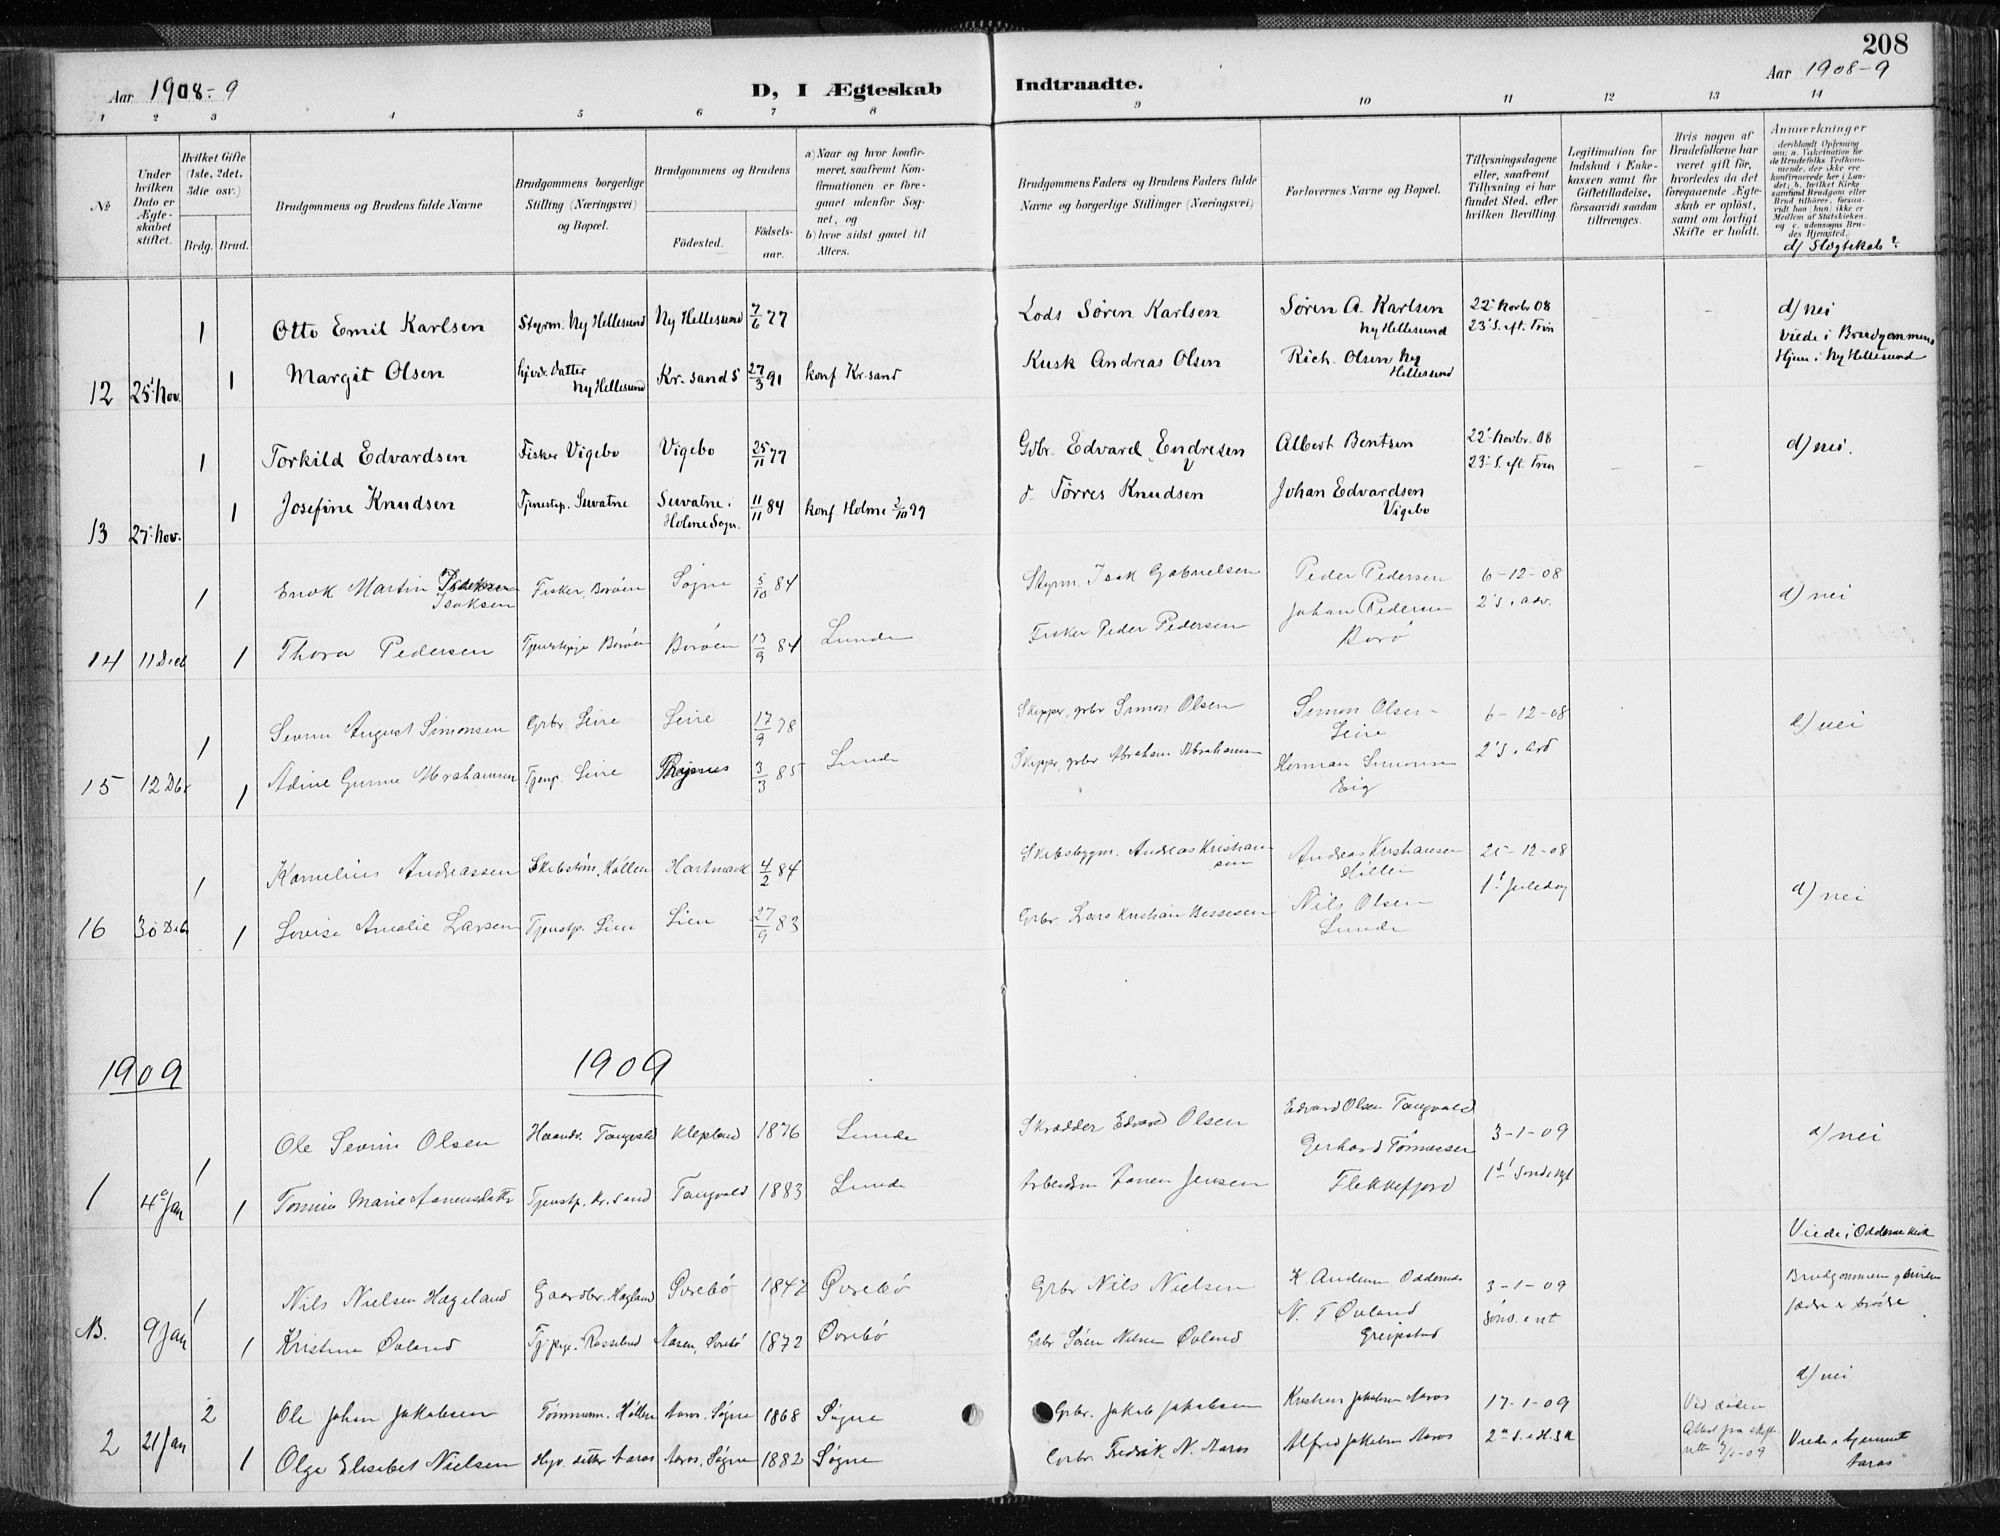 208
Aar 1908-9
D, I Ægteskab
Indtraadte.
Aar 1908-9
1 2 3 4 5 6 7 8 9 10 11 12 13 14
№
Under hvilken Dato er Ægteskabet stiftet.
Hvilket Gifte (1ste, 2det, 3die osv.)
Brdg. Brud.
Brudgommens og Brudens fulde Navne
Brudgommens borgerlige Stilling (Næringsvei) og Bopæl.
Brudgommens og Brudens
Fødested. Fødselsaar.
a) Naar og hvor konfirmeret, saafremt Konfirmationen er foregaaet udenfor Sognet, og
b) hvor sidst gaaet til Alters.
Brudgommens Faders og Brudens Faders fulde Navne og borgerlige Stillinger (Næringsvei)
Forlovernes Navne og Bopæl.
Tillysningsdagene eller, saafremt Tillysning ei har fundet Sted, efter hvilken Bevilling.
Legitimation for Indskud i Enkekassen samt for Giftetilladelse, forsaavidt saadan tiltrænges.
Hvis nogen af Brudefolkene har været gift før, hvorledes da det foregaaende Ægteskab er opløst, samt om lovligt Skifte er holdt.
Anmærkninger
deriblandt Oplysning om: a. Vakcination for de Brudefolks Vedkommende, der ikke ere konfirmerede her i Landet; b. hvilket Kirkesamfund Brudgom eller Brud tilhører, forsaavidt han (hun) ikke er Medlem af Statskirken, og c. udensogns Brudes Hjemsted.
d/ Slægtskab?
1 Otto Emil Karlsen Styrm. Ny Hellesund Ny Hellesund 7/6 77 Lods Søren Karlsen Søren A. Karlsen Ny Hellesund 22' Novbr 08 23' S. eft. Trin d) nei
Viede i Brudgommens Hjem i Ny Hellesund
12 25' Nov. 1 Margit Olsen hjvv. Datter Ny Hellesund Kr.sand S 27/3 91 konf Kr.sand Kusk Andreas Olsen Rich. Olsen Ny Hellesund
1 Torkild Edvardsen Fisker Vigebo Vigebo 25/11 77 Gdbr. Edvard Endresen Albert Bentsen 22' Novbr. 08 23' S. eft. Trin d) nei.
13 27' Nov. 1 Josefine Knudsen Tjenestep. Suvatne Suvatne. Holme Sogn. 11/11 84 konf Holme 2/10 99 Tørres Knudsen Johan Edvardsen Vigebo
1 Enok Martin Isaksen Isaksen Fisker, Borøen Søgne 5/10 84 Styrm. Isak Gabrielsen Peder Pedersen 6-12-08 d) nei
14 11 Dec 1 Thora Pedersen Tjenestepige Borøen Borøen 13/9 84 Lunde Fisker Peder Pedersen Johan Pedersen Borø 2' S. i Adv.
1 Severin August Simonsen Grbr Leire Leire 17/9 78 Skipper, grbr Simon Olsen Simon Olsen Leire 6-12-08 d) nei
15 12 Dbr 1 Adine Gurine Abrahamsen Tjenp. Leire 3/3 85 Lunde Skipper, grbr Abraham Abrahamsen Herman Simonsen Eig 2' S. i Ad
1 Kornelius Andreassen Skibstøm. Høllen Hartmark 4/2 84 Skibsbygm. Andreas Kristiansen Andreas Kristiansen Høllen 25-12-08 1' Juledag d) nei
16 30 Dec 1 Lovise Amalie Larsen Tjenstp. Lien Lien 27/9 83 Grbr Lars Kristian Bessesen Nils Olsen Lunde
1909 1909
1 Ole Severin Olsen Haandv. Tangvald Klepland 1876 Lunde Skrædder Edvard Olsen Edvard Olsen Tangvald 3-1-09 d) nei
1 4 Jan 1 Marie Tjenstp. Kr.sand Tangvald 1883 Lunde Arbeidsm Jensen Gerhard Tønnessen Flekkefjord
Viede i Oddernes Kirk
1 Nils Nielsen Hageland Gaardbr. Hægland Øvrebø 1847 Øvrebø Grbr Nils Nielsen K Andersen Oddernes 3-1-09 Brudgommen og Brudens fædre er brødre
No. 9 Jan 1 Kristine Øvland Tj.pige. Rosseland Aasen, Øvrebø 1872 Øvrebø Grbr Søren Nilsen Øvland N. T Øvland Greipstad
d) nei
2 Ole Johan Jakobsen Tømmerm. Høllen Aaros, Søgne 1868 Søgne Grbr. Jakob Jakobsen Kristian Jakobsen Aaros 17-1-09 Ved døden
2 21 Jan 1 Olga Elisabet Nielsen Hjv. datter Aaros Aaros, Søgne 1882 Søgne Grbr Fredrik N. Aaros Alfred Jakobsen Aaros Attest fra skifteretten 09 Viede i hjemmet Aaros